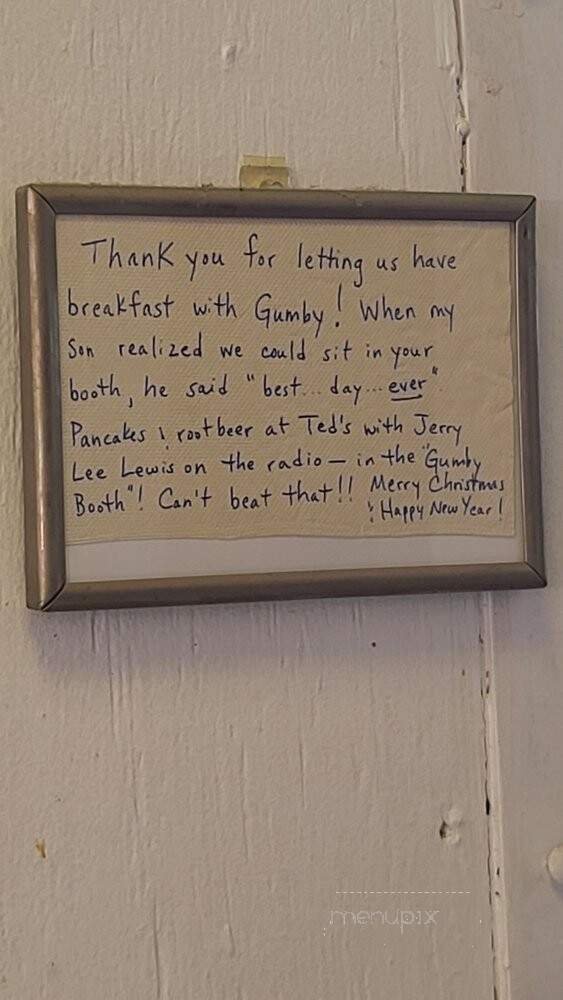 Thank you for letting us have
breakfast with Gumby! When my
son realized we could sit in your
booth, he said "best... day... ever".
Pancakes & root beer at Ted's with Jerry
Lee Lewis on the radio — in the "Gumby
Booth"! Can't beat that!! Merry Christmas
& Happy New Year!
menupix